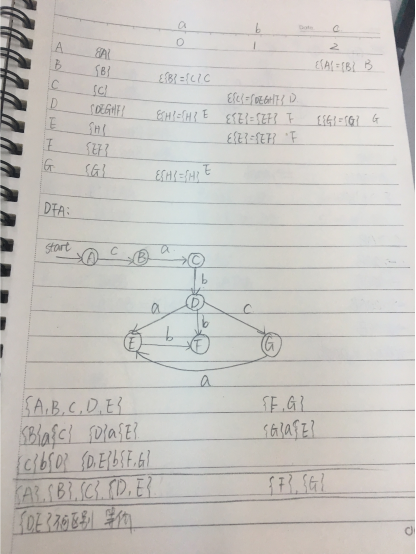 a b c
0 1 2
A {A} ε{A}={B} B
B {B} ε{B}={C} C
C {C} ε{C}={DEGHF} D
D {DEGHF} ε{H}={H} E ε{F}={EF} F ε{G}={G} G
E {H} ε{F}={EF} F
F {EF}
G {G} ε{H}={H} E
DFA:
start A c B a C
b
D
a b c
E b F G
a
{A,B,C,D,E} {F,G}
{B}a{C} {D}a{E} {G}a{E}
{C}b{D} {D,E}b{F,G}
{A},{B},{C},{D,E} {F},{G}
{D,E}不可区别 等价